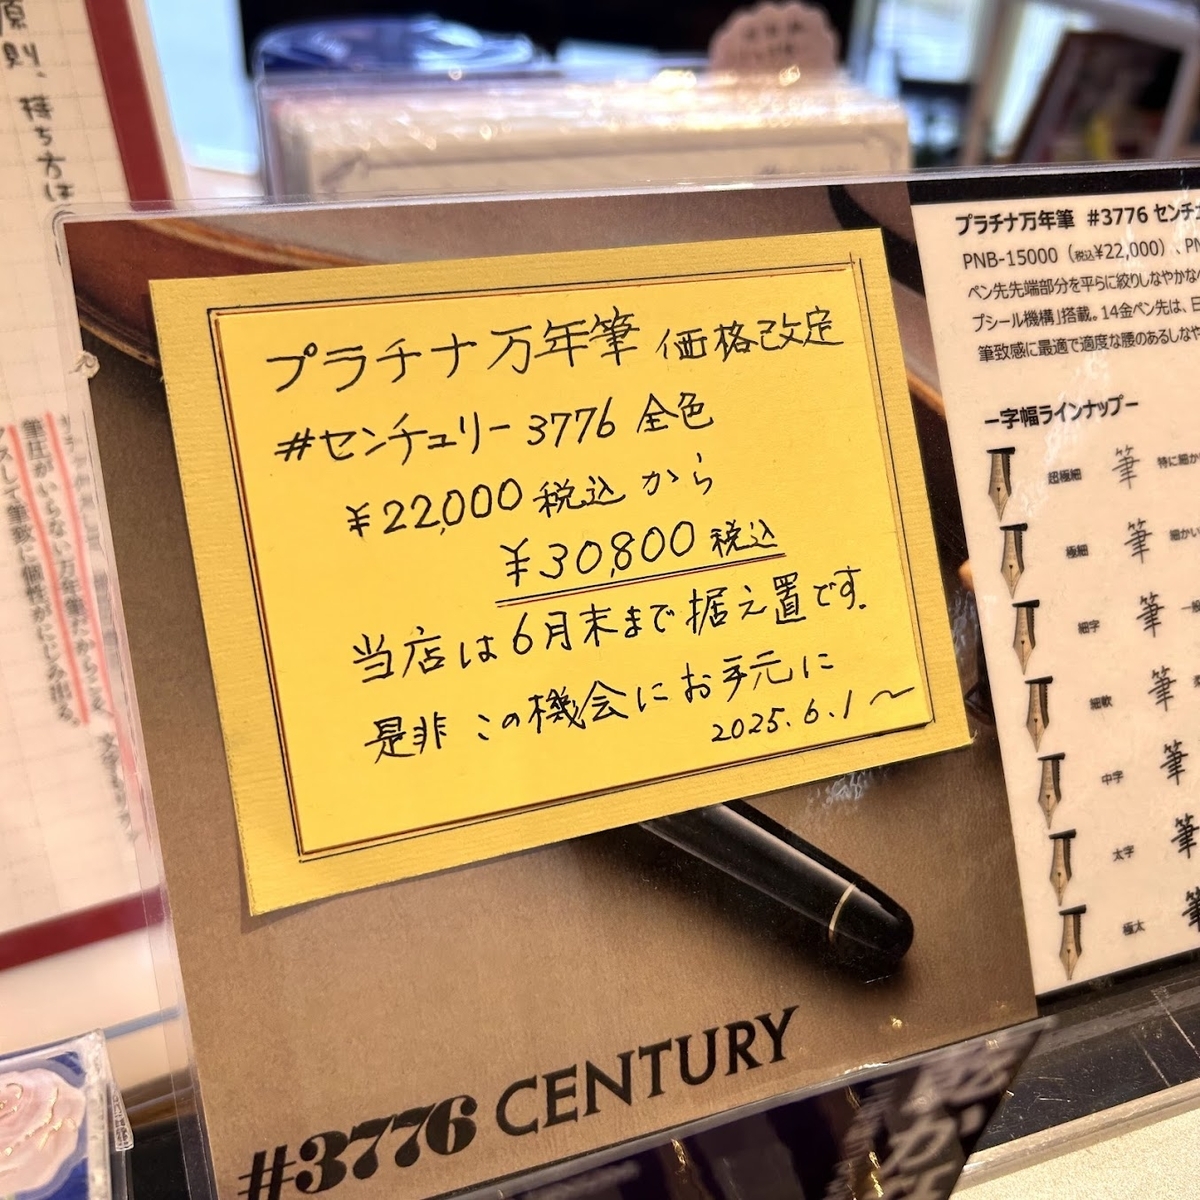 原則、持ち方は
筆圧がいらない万年筆だからこそ、
筆致に個性がにじみ出る。
プラチナ万年筆 価格改定
#センチュリー3776 全色
¥22,000 税込 から
¥30,800 税込
当店は6月末まで据え置です。
是非 この機会にお手元に
2025.6.1~
#3776 CENTURY
プラチナ万年筆 #3776 センチュ
PNB-15000（税込¥22,000）、PN
ペン先先端部分を平らに絞りしなやかな
プシール機構」搭載。14金ペン先は、日
筆致感に最適で適度な腰のあるしなや
ー字幅ラインナップー
超極細 筆 特に細か
極細 筆 細かい
細字 筆 一般
細軟 筆
中字 筆
太字 筆
極太 筆